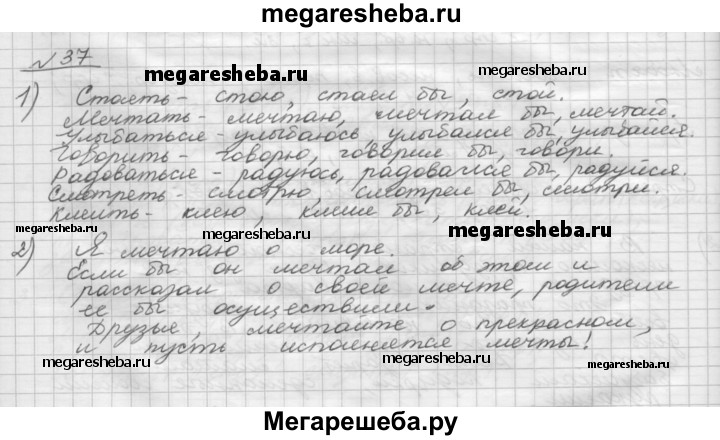 megaresheba.ru
№37
megaresheba.ru
1) Стоять - стою, стоял бы, стой.
Мечтать - мечтаю, мечтал бы, мечтай.
Улыбаться - улыбаюсь, улыбался бы, улыбайся.
Говорить - говорю, говорил бы, говори.
Радоваться - радуюсь, радовался бы, радуйся.
Смотреть - смотрю, смотрел бы, смотри.
Клеить - клею, клеил бы, клей.
megaresheba.ru
megaresheba.ru
2) Я мечтаю о море.
Если бы он мечтал об этом и
рассказал о своей мечте, родители
ее бы осуществили.
Друзья, мечтайте о прекрасном,
и пусть исполняются мечты!
megaresheba.ru
megaresheba.ru
Мегарешеба.ру